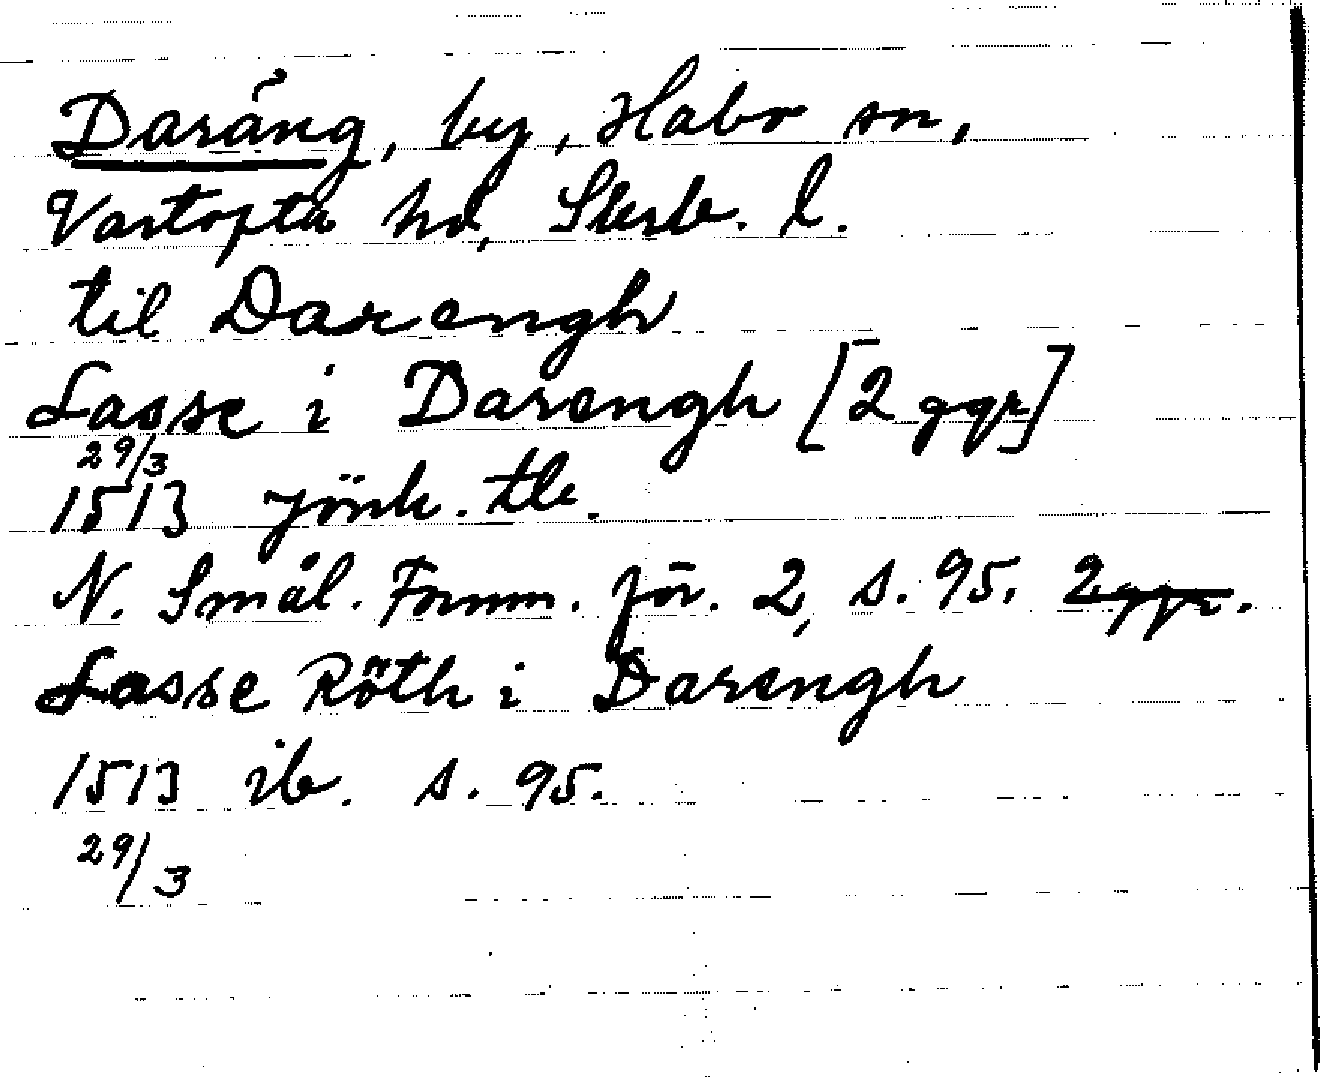 Daräng, by, Habo sn,
Vartofta hd, Skarb. l.
til Darengh
Lasse i Darengh [2 ggr]
29/3
1513 Jönk. tb.
N. Smål. Fornm. för. 2, s. 95. 2 ggr.
Lasse Röth i Darengh
1513 ib. s. 95.
29/3